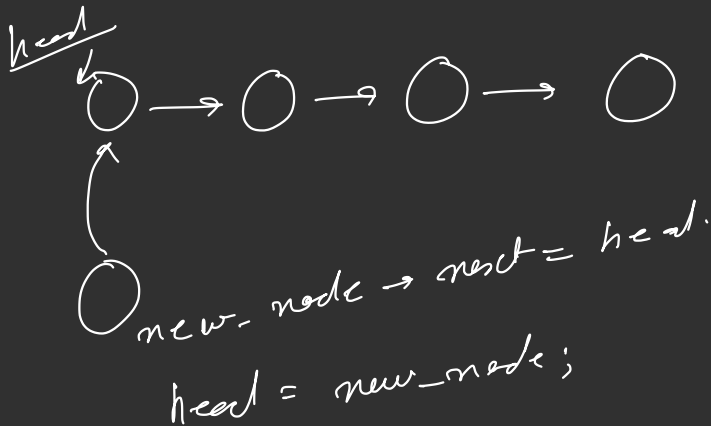 head
new_node → next = head.
head = new_node;